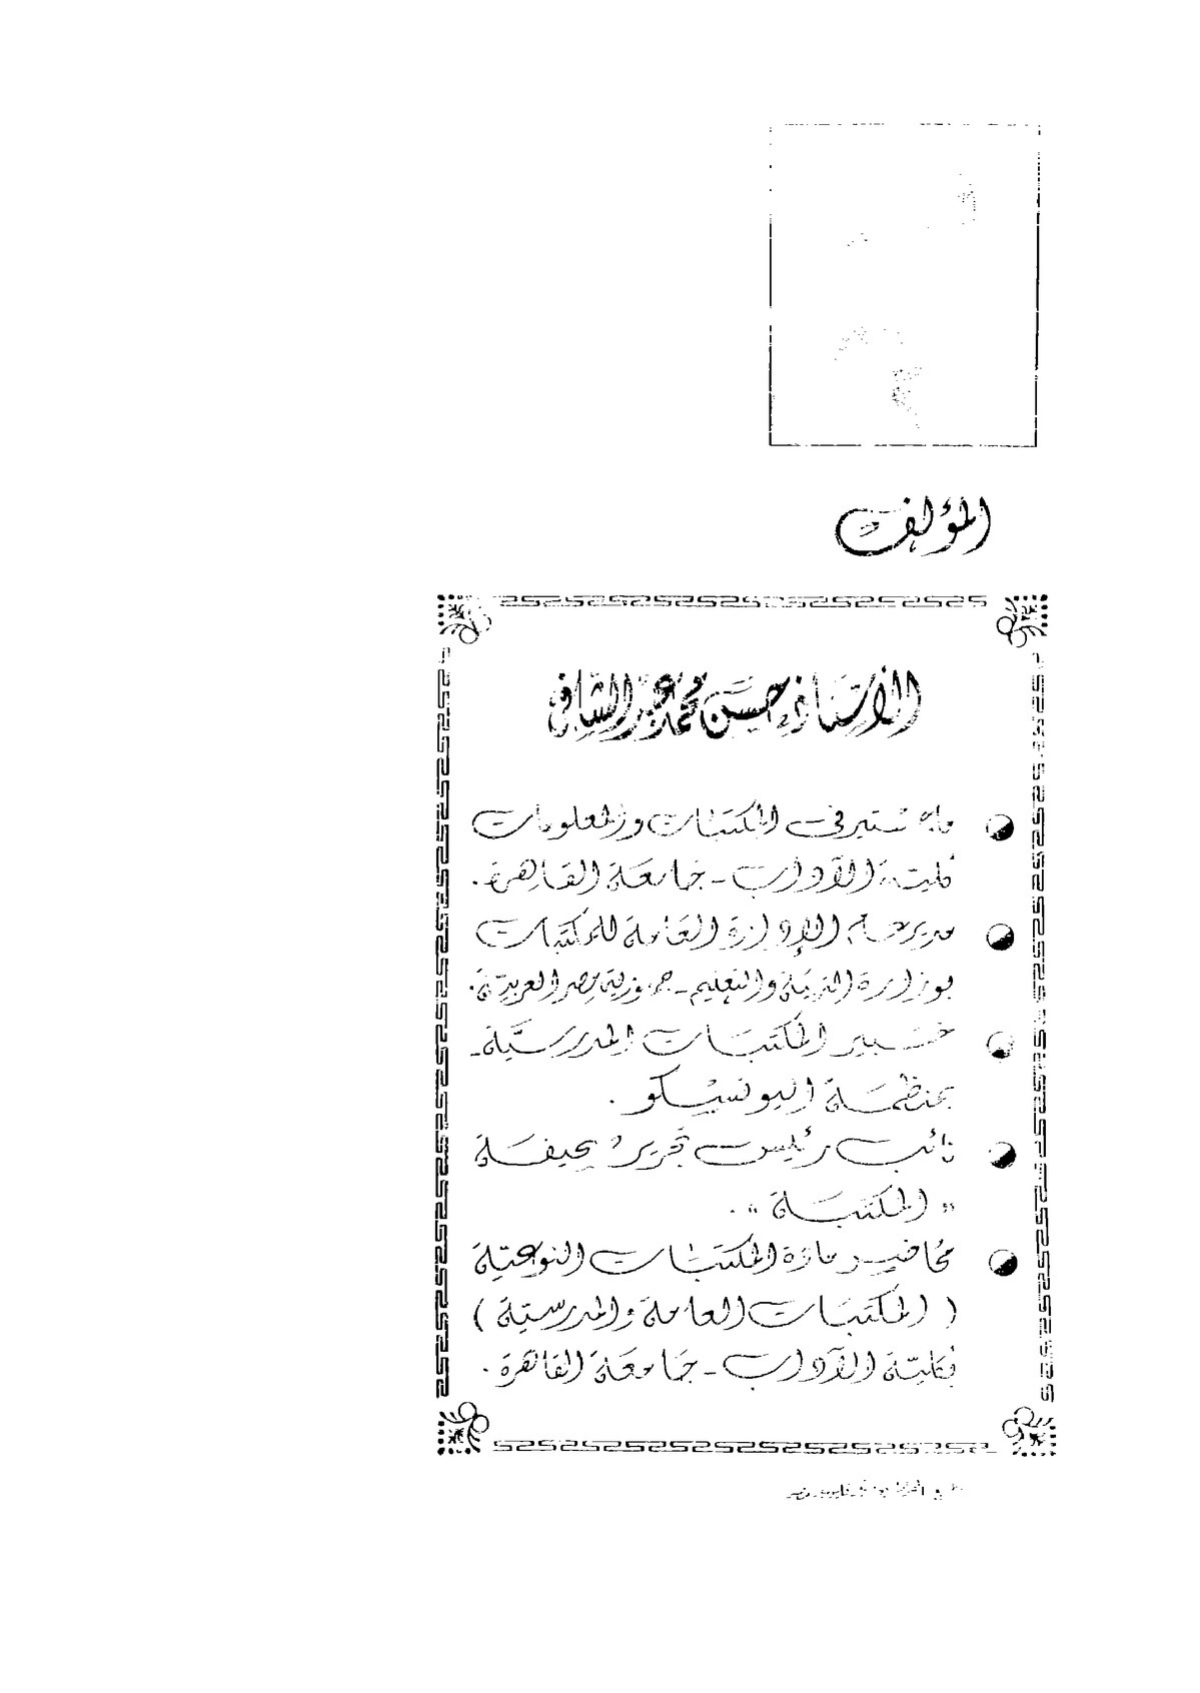 المؤلف
الأستاذ حسن محمد عبد الشافي
ماجستير في المكتبات والمعلومات
كلية الآداب - جامعة القاهرة.
مدير عام الإدارة العامة للمكتبات
بوزارة التربية والتعليم - جمهورية مصر العربية.
خبير المكتبات المدرسية -
بمنظمة اليونسيكو.
نائب رئيس تحرير صحيفة
« المكتبة ».
محاضر مادة المكتبات النوعية
( المكتبات العامة والمدرسية )
بكلية الآداب - جامعة القاهرة.